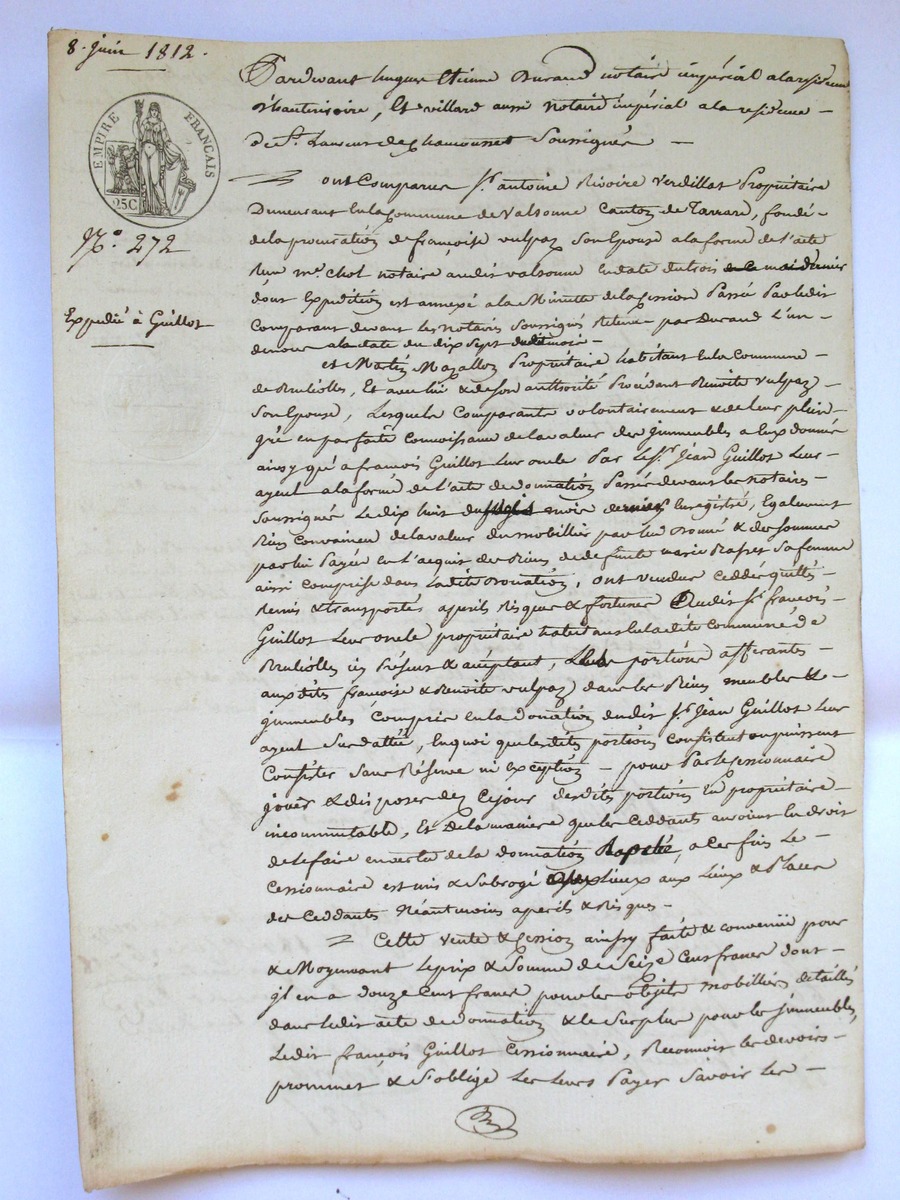 8. juin 1812.
EMPIRE FRANÇAIS
25C
N.o 272
Expedié à Guillot
Pardevant hugue Etienne Durand notaire impérial ala residence
d'hauterivoire, Et villard aussi notaire impérial a la residence
De St. Laurent de Chamousset Soussignés
ont Comparus Sr. antoine Rivoire Verdillat Propriétaire
Demeurant En la Commune de Valsonne Canton de Tarrare, fondé
de la procuration de françoise vulpaz Son Epouse a la forme de l'acte
Reçu me. Chol notaire audit valsonne En date du trois
dont Expedition est annexé a la Minutte de la Cession Passée Par ledit
Comparant devant Les Notaires Soussignés Retenue par Durand L'un
d'enous a la date du dix Sept
et Martin Mazallon Propriétaire habitant En la Commune
de Brulliolles, Et avec lui & de Son authorité Procédant Benoite Vulpaz
Son Epouse, Lesquels Comparants volontairement & de leur plein
gré en parfaite Connoissance de la valeur des jmmeubles a Eux donnés
ainsy qu'a françois Guillot Leur oncle Par Le Sr. Jean Guillot Leur
ayeul a la forme de l'acte de donnation Passée devant les notaires
Soussignés Le dix huit du mois dernier Enregistré, Egalement
Bien Convaincu de la valeur du mobillier par lui Donné & des Sommes
par lui Payées En l'acquit des Biens de defunte marie Sa femme
aussi Comprise dans La dite Donnation, ont vendus Ceddés quittés
Remis & transportés a perils Risques & fortunes Audit Sr. françois
Guillot Leur oncle propriétaire habitant En la dite Commune de
Brulliolles ici Présent & acceptant, Les portions afferantes
aux dites françoise & Benoite vulpaz dans les Biens meubles &
jmmeubles Compris En la Donnation dudit Sr. Jean Guillot Leur
ayeul Surdattée, En quoi que les dites portions Consistent ou puissent
Consister Sans Réserve ni Exception – pour Par le Cessionnaire
jouir & disposer dez Ce jour desdites portions En propriétaire
incommutable, Et de la maniere que les Ceddants auroient En droit
de le faire en vertu de la donnation, a Ces fins Le
Cessionnaire est mis & Subrogé aux Lieux & Places
des Ceddants Néantmoins a perils & Risques –
Cette vente & Cession ainsy faite & convenüe pour
& Moyennant Le prix & Somme de Seize Cent francs dont
jl en a douze Cent francs pour les objets mobilliers détaillés
dans ledit acte de donnation & le Surplus pour les jmmeubles,
Ledit françois Guillot Cessionnaire, Reconnoit les devoirs
prommet & S'oblige Les Leurs Payer Savoir Les